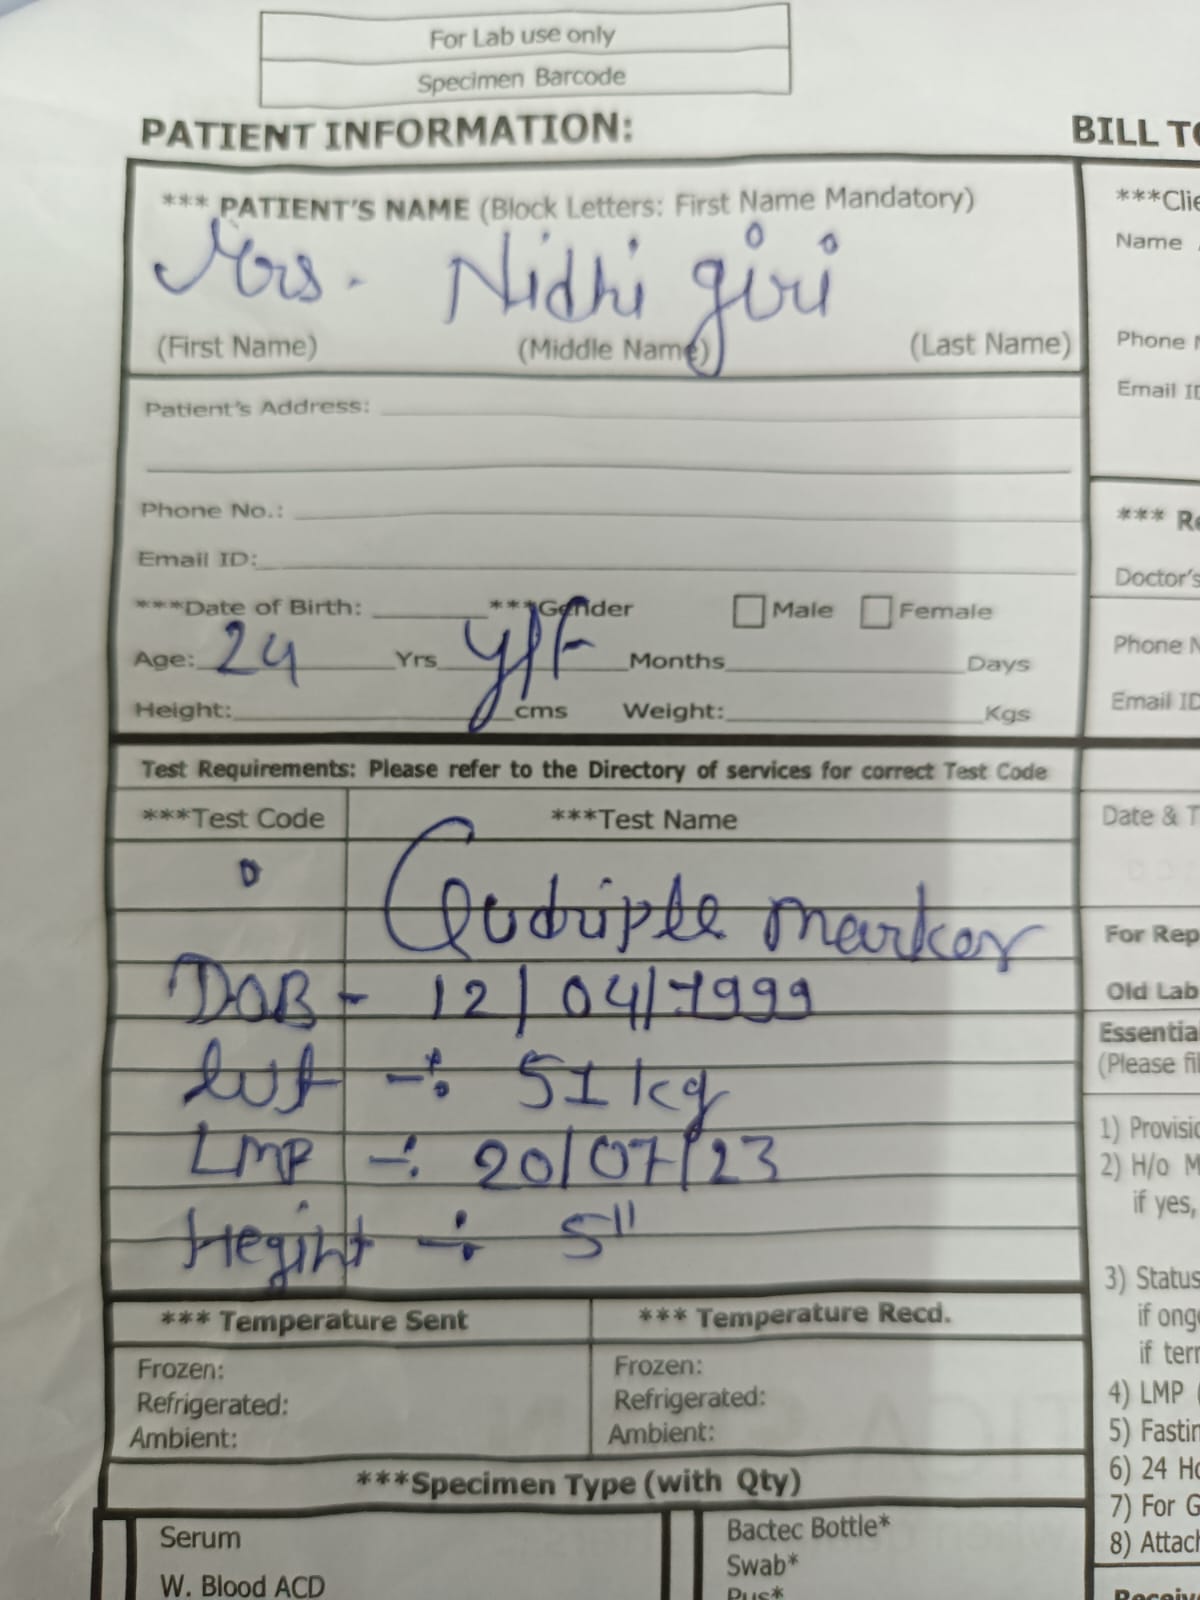 For Lab use only
Specimen Barcode
PATIENT INFORMATION:
BILL TO
*** PATIENT'S NAME (Block Letters: First Name Mandatory)
Mrs. Nidhi giri
(First Name) (Middle Name) (Last Name)
Patient's Address:
Phone No.:
Email ID:
***Date of Birth: ***Gender Male Female
Age: 24 Yrs Y/F Months Days
Height: cms Weight: Kgs
Test Requirements: Please refer to the Directory of services for correct Test Code
***Test Code ***Test Name
Qudriple marker
DOB - 12/04/1999
wt ÷ 51 kg
LMP ÷ 20/07/23
Hegiht ÷ 5"
*** Temperature Sent *** Temperature Recd.
Frozen: Frozen:
Refrigerated: Refrigerated:
Ambient: Ambient:
***Specimen Type (with Qty)
Serum Bactec Bottle*
W. Blood ACD Swab*
Pus*
***Clie
Name
Phone N
Email ID
*** Re
Doctor's
Phone N
Email ID
Date & T
For Rep
Old Lab
Essentia
(Please fil
1) Provisio
2) H/o M
if yes,
3) Status
if ongo
if term
4) LMP (
5) Fastin
6) 24 Ho
7) For G
8) Attach
Receive